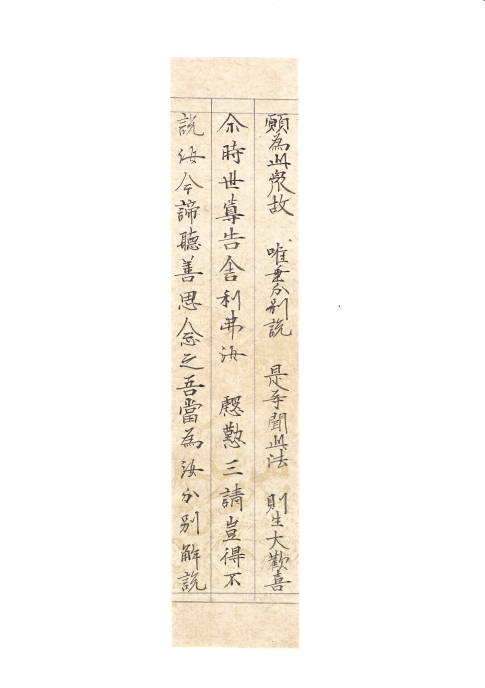 願為此衆故 唯垂分別說 是等聞此法 則生大歡喜
尒時世尊告舎利弗汝 慇懃三請豈得不
說汝今諦聽善思念之吾當為汝分別解說